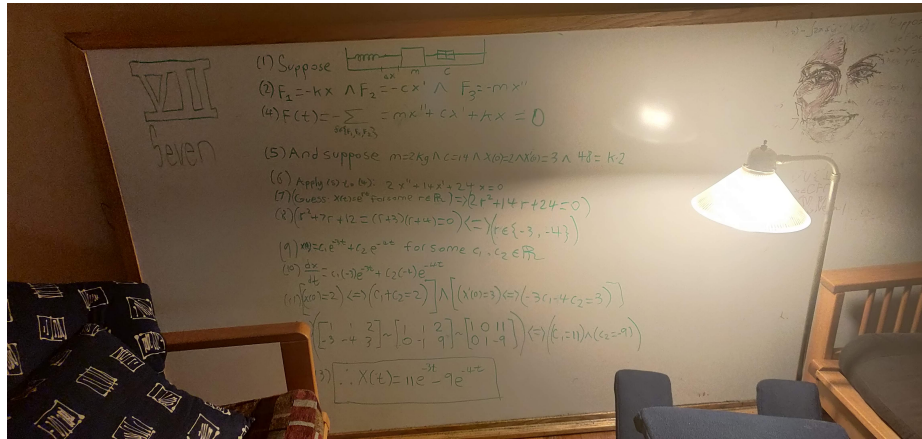 VII
Seven
(1) Suppose
Δx m c
(2) F₁=-kx ∧ F₂=-cx' ∧ F₃=-mx"
(4) F(t)=-∑ = mx"+cx'+kx = 0
(5) And suppose m=2kg ∧ c=14 ∧ x(0)=2 ∧ x'(0)=3 ∧ 48=k·2
(6) Apply (5) to (4): 2x"+14x'+24x=0
(7) (Guess x(t)=e^rt for some r∈ℝ)=>(2r²+14r+24=0)
(8) (r²+7r+12=(r+3)(r+4)=0)<=>(r∈{-3,-4})
(9) x(t)=c₁e^-3t+c₂e^-4t for some c₁,c₂∈ℝ
(10) dx/dt=c₁(-3)e^-3t+c₂(-4)e^-4t
[(x(0)=2)<=>(c₁+c₂=2)]∧[(x'(0)=3)<=>(-3c₁-4c₂=3)]
([1 1 2 -3 -4 3]~[1 1 2 0 -1 9]~[1 0 11 0 1 -9])<=>(c₁=11)∧(c₂=-9)
∴ X(t)=11e^-3t-9e^-4t